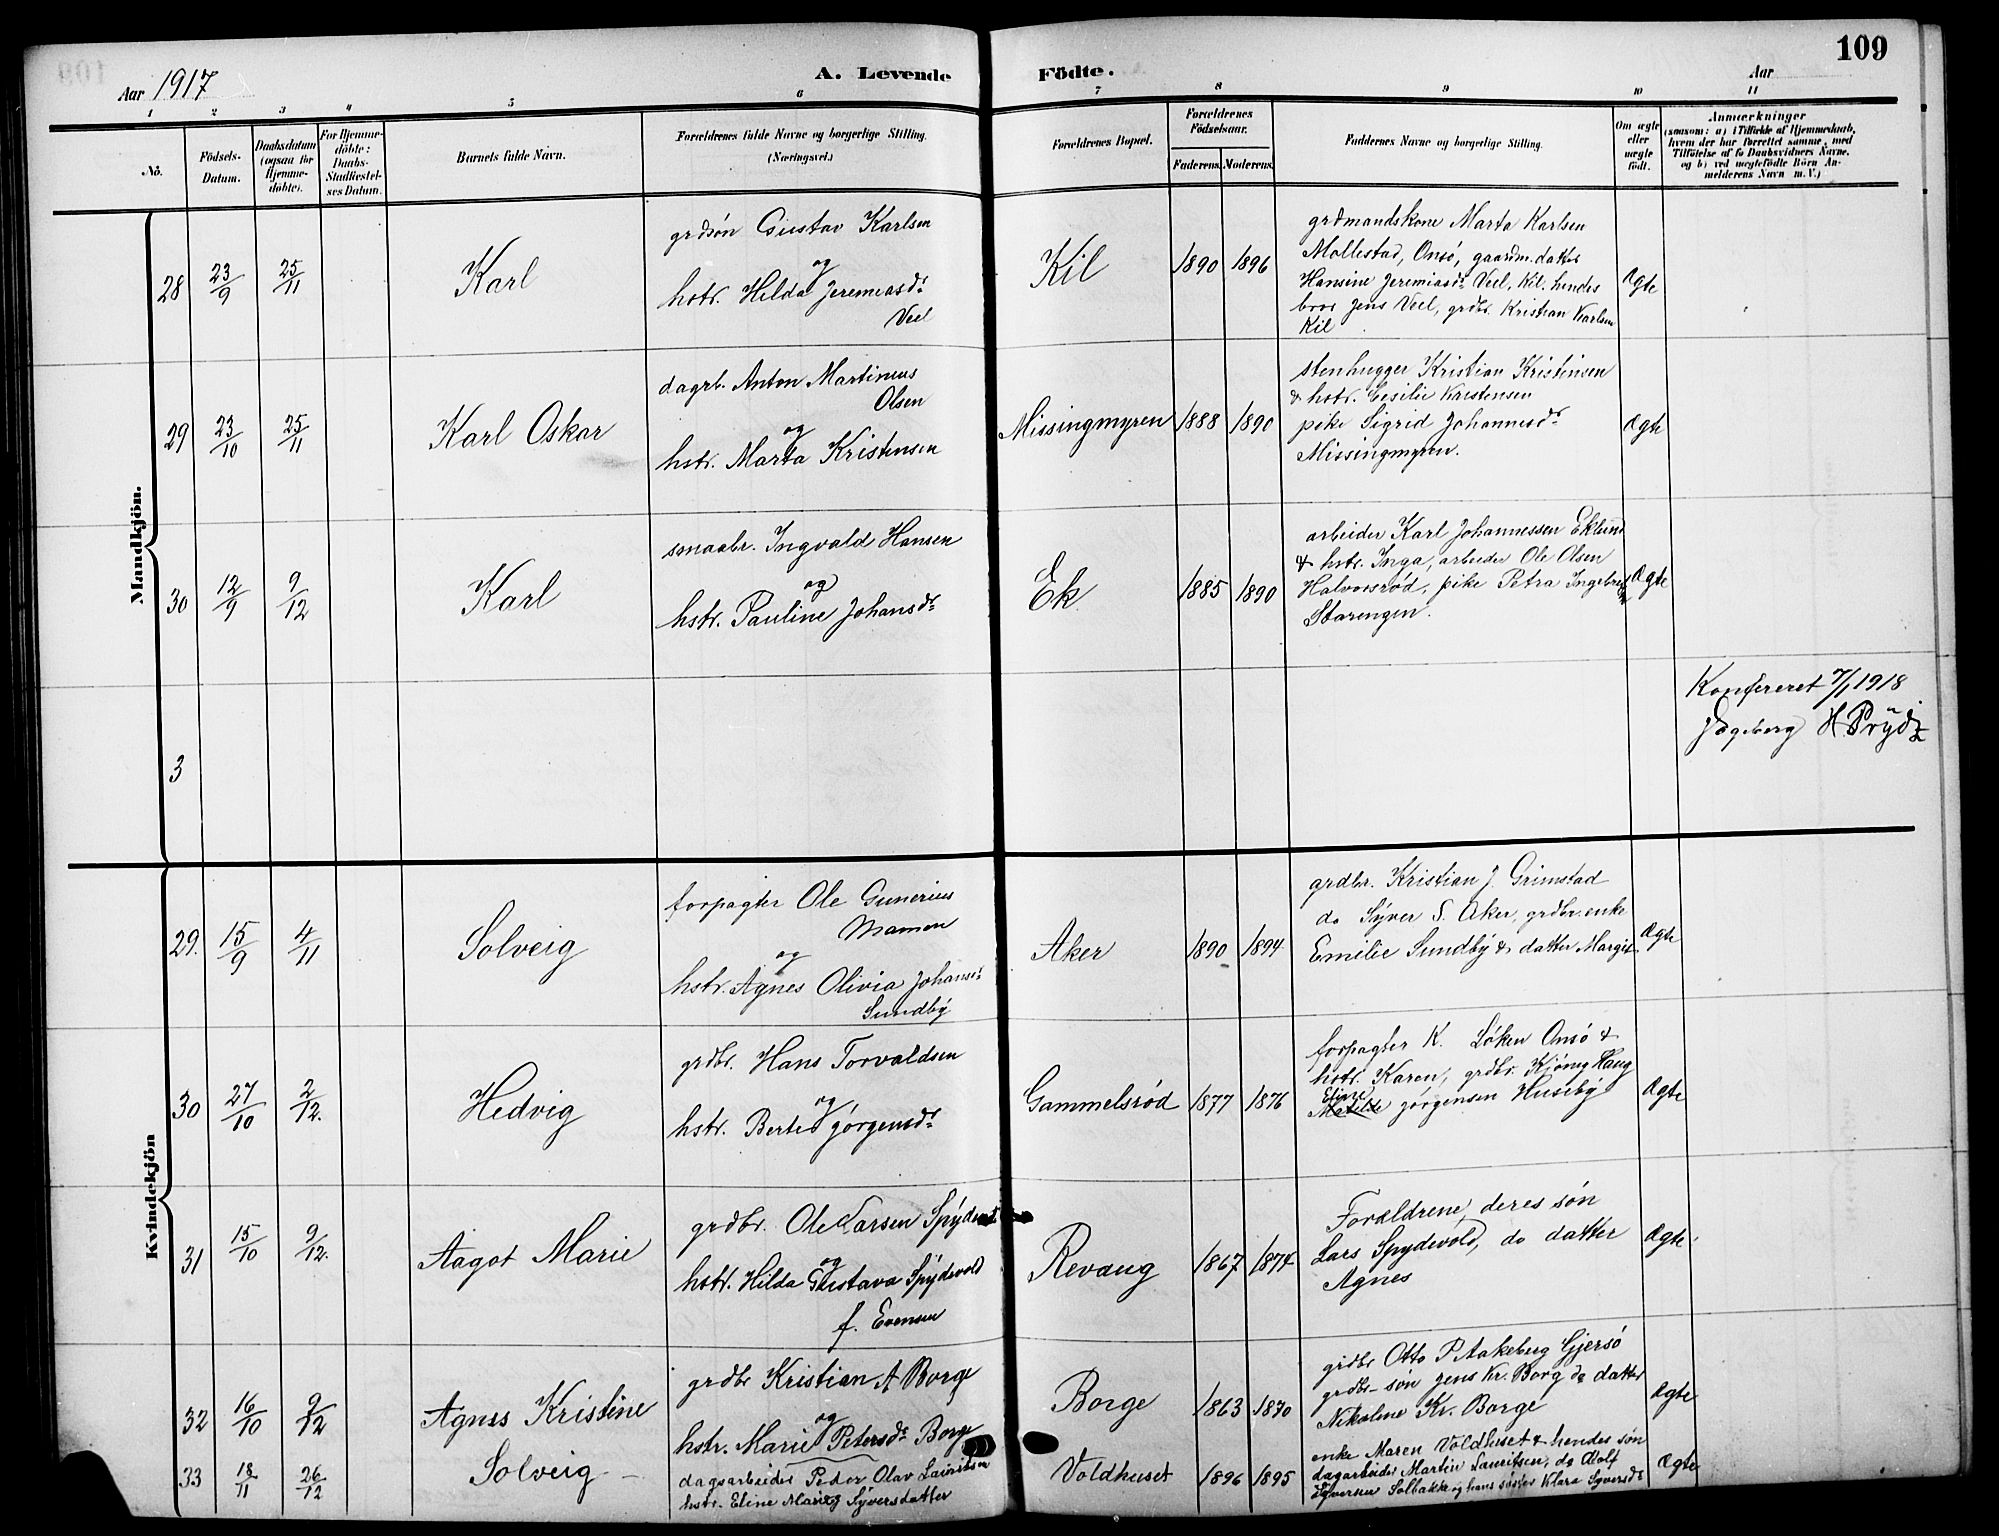 109
Aar 1917
A. Levende Födte.
Aar
1 2 3 4 5 6 7 8 9 10 11
No.
Födsels-Datum.
Daabsdatum (ogsaa for Hjemmedöbte).
For Hjemmedöbte: Daabs-Stadfæstelses Datum.
Barnets fulde Navn.
Forældrenes fulde Navne og borgerlige Stilling. (Næringsvei.)
Forældrenes Bopæl.
Forældrenes Födselsaar.
Faderens. Moderens.
Faddernes Navne og borgerlige Stilling.
Om ægte eller uægte födt.
Anmærkninger
(saasom: a) i Tilfælde af Hjemmedaab,
hvem der har forrettet samme, med
Tilföielse af to Daabsvidners Navne.
og b) ved uægtefödte Börn Anmelderens Navn m. V.)
Mandkjön.
28 23/9 25/11 Karl
grdsön Gustav Karlsen
og
hstr. Hilda Jeremiasdr
Veel
Kil 1890 1896
grdmandskone Marta Karlsen
Mollestad, Onsö, gaardm.datter
Hansine Jeremiasdr Veel, Kil. hendes
bror Jens Veel, grdbr. Kristian Karlsen
Kil
Ægte
29 23/10 25/11 Karl Oskar
dagrb. Anton Martinius
Olsen
og
hstr. Marta Kristensen
Missingmyren 1888 1890
stenhugger Kristian Kristensen
& hstr. Cesilie Kristensen
pike Sigrid Johannesdr
Missingmyren.
Ægte
30 12/9 9/12 Karl
smaabr. Ingvald Hansen
og
hstr. Pauline Johansdr
Ek 1885 1890
arbeider Karl Johannessen Eklund
& hstr. Inga, arbeider Ole Olsen
Halvorsröd, pike Petra
Starengen.
Ægte
Konfereret 7/1 1918
H Prydz
3
Kvindekjön
29. 15/9 4/11 Solveig
forpagter Ole Gunerius
Mamen
og
hstr. Agnes Olivia Johansdr
Sundby
Aker 1890 1894
grdbr. Kristian J. Grimstad
do Syver S. Aker, grdbr.enke
Emilie Sundby & datter Margit
Ægte
30 27/10 2/12. Hedvig
grdbr. Hans Torvaldsen
og
hstr. Berte Jörgensdr
Gammelsröd 1877 1876
forpagter K. Löken Onsö &
hstr. Karen, grdbr. Kjönig Haug
Eline
Matilde Jörgensen Huseby
Ægte
31 15/10 9/12. Aagot Marie
grdbr. Ole Larsen Spydevold
og
hstr. Hilda Gustava Spydevold
f. Evensen
Revaug 1867 1874
Foreldrene, deres sön
Lars Spydevold, do datter
Agnes
Ægte
32 16/10 9/12 Agnes Kristine
grdbr Kristian A Borge
og
hstr. Marie Petersdr Borge
Borge 1863 1870
grdbr Otto P Aakeberg Gjersö
grdbr-sön Jens Kr. Borg do datter
Nikoline Kr. Borge
Ægte
33 18/11 26/12 Solveig
dagsarbeider Peder Olav Lauritsen
hstr. Eline Marie Syversdatter
Voldhuset 1896 1895
enke Maren Voldhuset & hendes sön
dagarbeider Martin Lauritsen, do Adolf
Syversen Solbakke og hans söster Klara Syversdr
Ægte